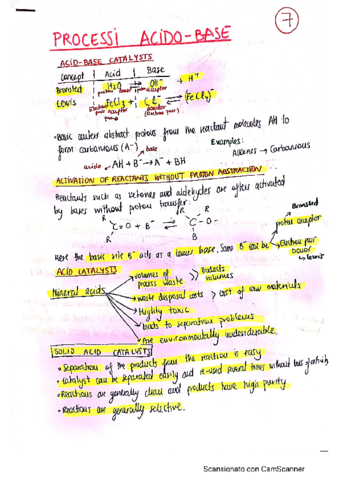 7
PROCESSI ACIDO-BASE
ACID-BASE CATALYSTS
Concept Acid Base
Bronsted H2O OH- → H+
proton donor proton acceptor
Lewis FeCl3 + Cl- → (FeCl4)-
Electron pair acceptor donor (Electron pair)
• Basic centers abstract protons from the reactant molecules AH to
form carbanions (A-) base
Examples:
Alkanes → Carbanions
acido AH + B- → A- + BH
ACTIVATION OF REACTANTS WITHOUT PROTON ABSTRACTION
Reactants such as ketones and aldehydes are often activated
by bases without proton transfer.
R R
C=O + B- → C-O-
R R B
Bronsted
proton acceptor
Here the basic site B- acts as a Lewis base. Same B- will be Electron pair
donor
Lewis
ACID CATALYSTS
Mineral acids
volumes of process waste >> Products volumes
waste disposal costs > cost of raw materials
Highly toxic
Leads to separation problems
Are environmentally undesirable.
SOLID ACID CATALYSTS
• Separation of the products from the reaction is easy
• Catalyst can be separated easily and re-used several times without loss of activity
• Reactions are generally clean and products have high purity
• Reactions are generally selective.
Scansionato con CamScanner